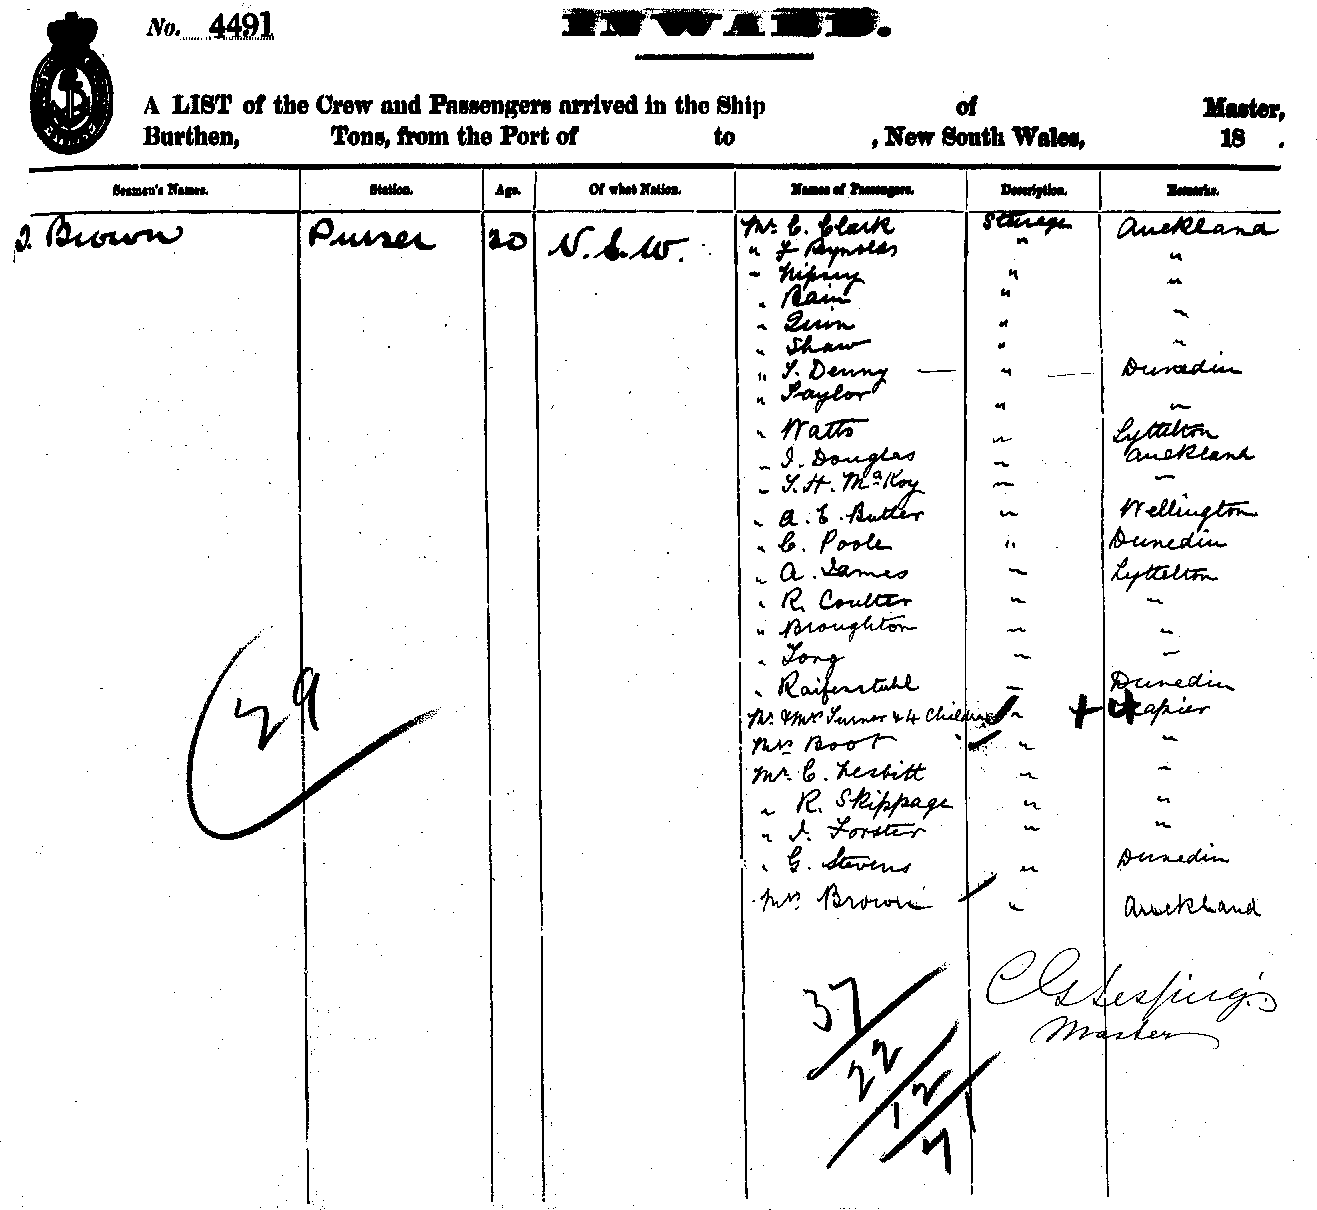 No. 4491
INWARD.
A LIST of the Crew and Passengers arrived in the Ship of Master,
Burthen, Tons, from the Port of to , New South Wales, 18 .
Seamen's Names. Station. Age. Of what Nation. Names of Passengers. Description. Remarks.
J. Brown Purser 20 N.S.W. Mr. C. Clark Steerage Auckland
" Reynolds " "
" " "
" Bain "
" Quin " "
" Shaw " "
" T. Denny — " — Dunedin
" Taylor " "
" Watts " Lyttelton
" J. Douglas " Auckland
" T. H. McKoy " "
" A. E. Butler " Wellington
" C. Poole " Dunedin
" A. James " Lyttelton
" R. Coulter " "
" Broughton " "
" Long " "
" Raifenstuhl " Dunedin
Mr. & Mrs Turner & 4 Children " + 4 Napier
Mrs Boot " "
Mr. C. Nesbitt " "
" R. Skippage " "
" J. Forster " "
" G. Stevens " Dunedin
Mrs. Brown " Auckland
29
Master
37/22/12/7